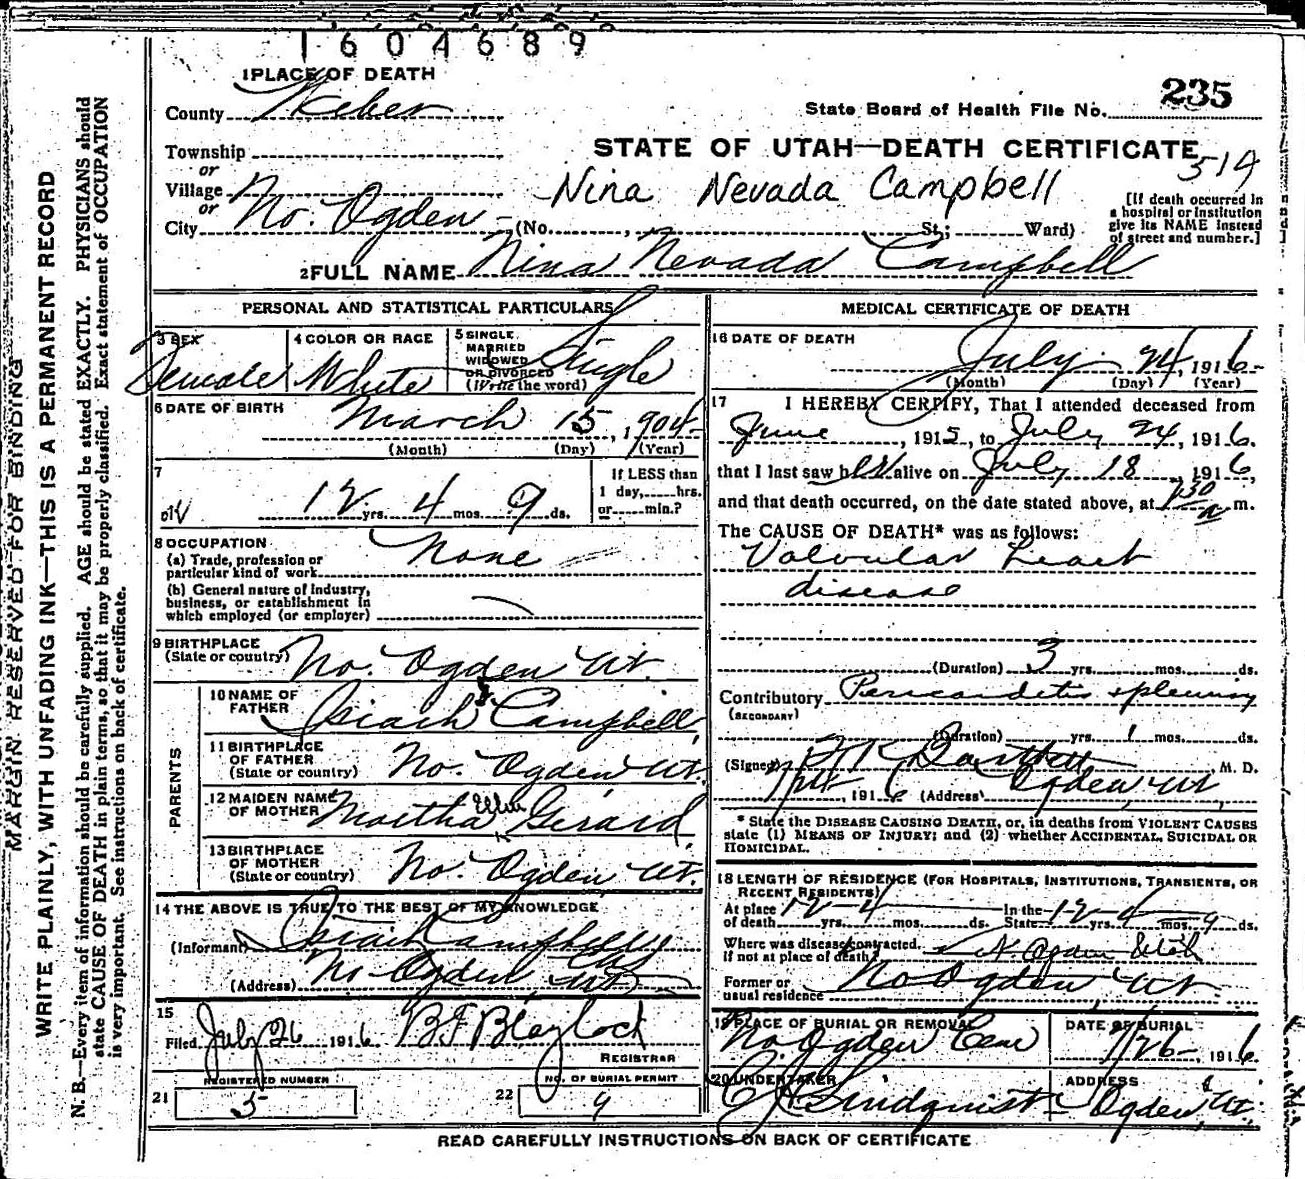 1604689
1 PLACE OF DEATH
235
County Weber
State Board of Health File No.
Township
STATE OF UTAH—DEATH CERTIFICATE
514
or
Village
Nina Nevada Campbell
or
City No. Ogden (No. , St.; Ward)
[If death occurred in
a hospital or institution
give its NAME instead
of street and number.]
2 FULL NAME Nina Nevada Campbell
PERSONAL AND STATISTICAL PARTICULARS
3 SEX
Female
4 COLOR OR RACE
White
5 SINGLE
MARRIED
WIDOWED
OR DIVORCED
(Write the word)
Single
6 DATE OF BIRTH
March 15, 1904
(Month) (Day) (Year)
7
12 yrs. 4 mos. 9 ds.
If LESS than
1 day, hrs.
or min.?
8 OCCUPATION
(a) Trade, profession or
particular kind of work
None
(b) General nature of Industry,
business, or establishment in
which employed (or employer)
9 BIRTHPLACE
(State or country)
No. Ogden Ut.
PARENTS
10 NAME OF
FATHER
Isiach Campbell
11 BIRTHPLACE
OF FATHER
(State or country)
No. Ogden Ut.
12 MAIDEN NAME
OF MOTHER
Martha Ellen Gerard
13 BIRTHPLACE
OF MOTHER
(State or country)
No. Ogden Ut.
14 THE ABOVE IS TRUE TO THE BEST OF MY KNOWLEDGE
(Informant) Isiach Campbell
(Address) No Ogden, Ut
15
Filed July 26 1916 B F Blaylock
REGISTRAR
REGISTERED NUMBER
21 5
NO. OF BURIAL PERMIT
22 9
MEDICAL CERTIFICATE OF DEATH
16 DATE OF DEATH
July 24, 1916
(Month) (Day) (Year)
17 I HEREBY CERTIFY, That I attended deceased from
June , 1915, to July 24, 1916.
that I last saw her alive on July 18, 1916,
and that death occurred, on the date stated above, at 1 30 a m.
The CAUSE OF DEATH* was as follows:
Valvular heart
disease
(Duration) 3 yrs. mos. ds.
Contributory Pericarditis + pleurisy
(SECONDARY)
(Duration) yrs. 1 mos. ds.
(Signed) Bartlett M. D.
, 1916 (Address) Ogden, Ut,
* State the DISEASE CAUSING DEATH, or, in deaths from VIOLENT CAUSES
state (1) MEANS OF INJURY; and (2) whether ACCIDENTAL, SUICIDAL OR
HOMICIDAL.
18 LENGTH OF RESIDENCE (FOR HOSPITALS, INSTITUTIONS, TRANSIENTS, OR
RECENT RESIDENTS)
At place
of death 12 yrs. 4 mos. ds. In the
State 12 yrs. 4 mos. 9 ds.
Where was disease contracted.
If not at place of death? N. Ogden Utah
Former or
usual residence No Ogden, Ut.
19 PLACE OF BURIAL OR REMOVAL
No Ogden Cem
DATE OF BURIAL
7/26 1916
20 UNDERTAKER
Lindquist
ADDRESS
Ogden, Ut.
READ CAREFULLY INSTRUCTIONS ON BACK OF CERTIFICATE
MARGIN RESERVED FOR BINDING
WRITE PLAINLY, WITH UNFADING INK—THIS IS A PERMANENT RECORD
N. B.—Every item of information should be carefully supplied. AGE should be stated EXACTLY. PHYSICIANS should
state CAUSE OF DEATH in plain terms, so that it may be properly classified. Exact statement of OCCUPATION
is very important. See instructions on back of certificate.